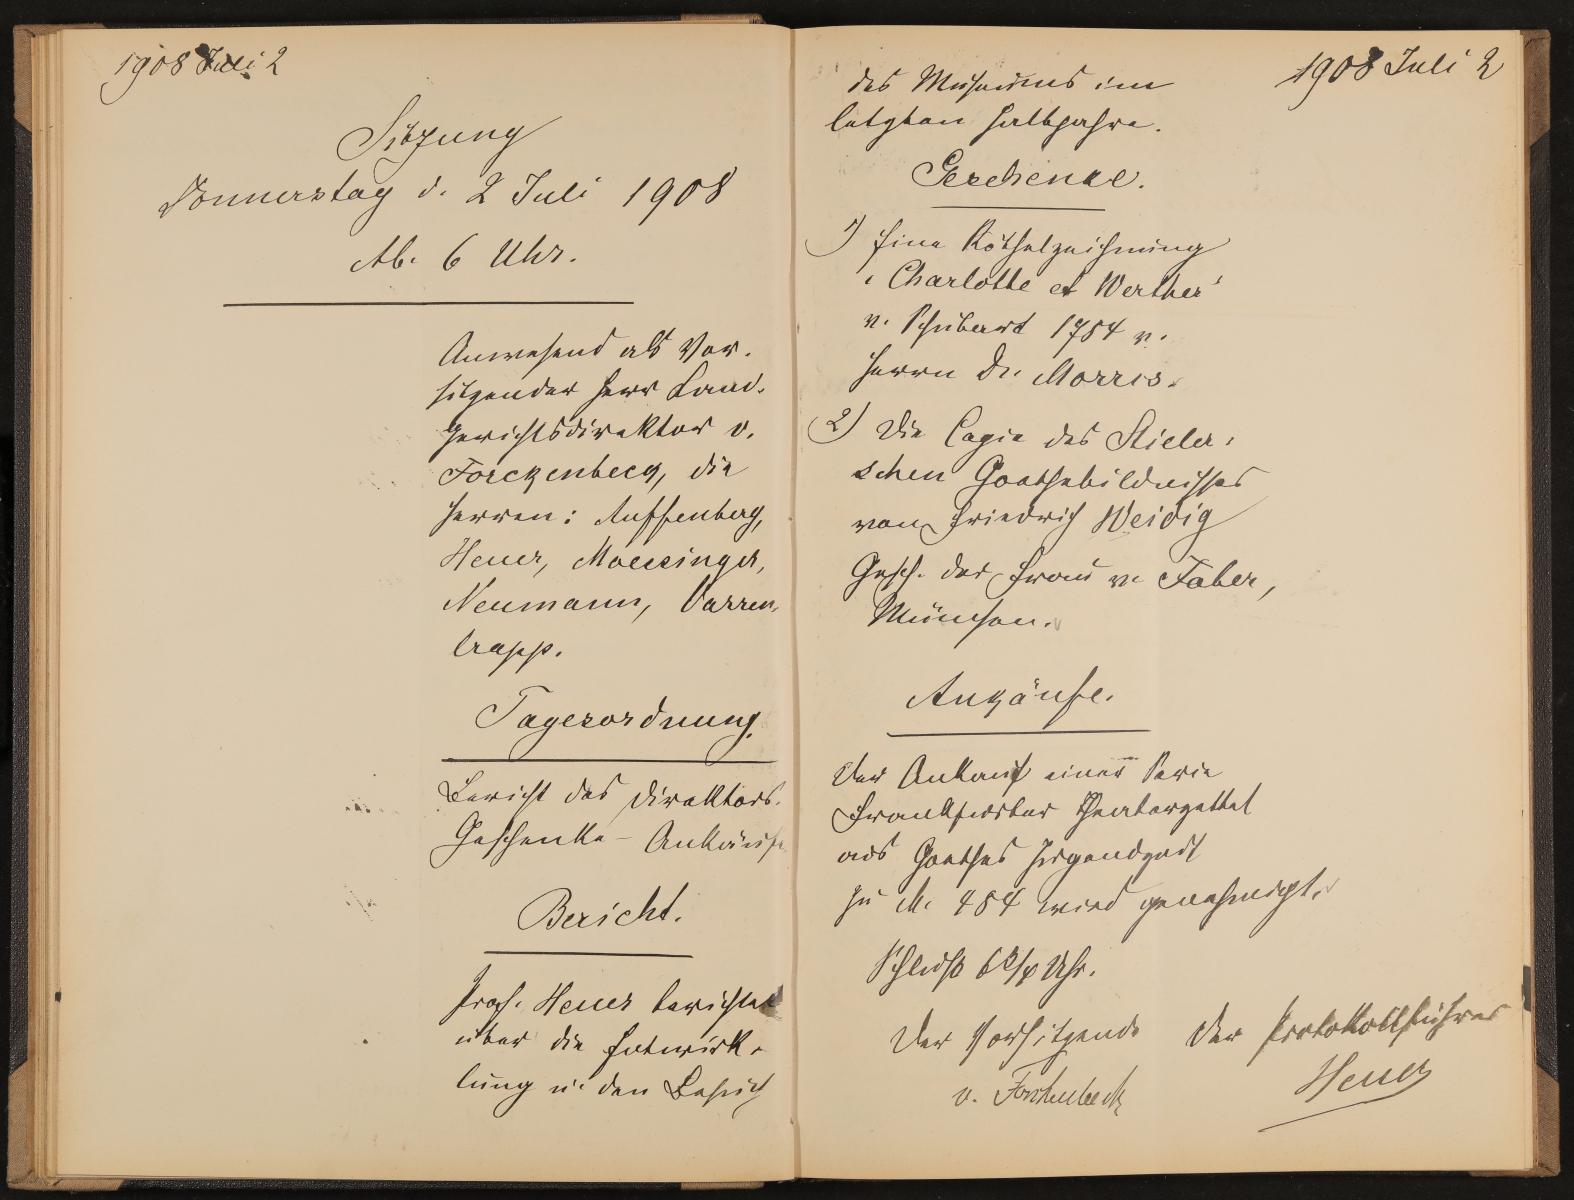 1908 Juli 2
Sitzung
Donnerstag d. 2 Juli 1908
Ab. 6 Uhr.
Anwesend als Vor-
sitzender Herr Land-
gerichtsdirektor v.
Forckenbeck, die
Herren: Auffenberg,
Heuer, Moessinger,
Neumann, Varren-
trapp.
Tagesordnung.
Bericht des Direktors.
Geschenke - Ankäufe
Bericht.
Prof. Heuer berichtet
über die Entwick-
lung u. den Besuch
1908 Juli 2
des Museums im
letzten Halbjahre.
Geschenke.
1) Eine Röthelzeichnung
"Charlotte et Werther"
v. Schubart 1784 v.
Herrn Dr. Morris.
2) Die Copie des Stieler-
schen Goethebildnisses
von Friedrich Weidig
Gesch. der Frau v. Faber,
München.
Ankäufe.
Der Ankauf einer Serie
Frankfurter Theaterzettel
aus Goethes Jugendzeit
zu M. 484 wird genehmigt.
Schluß 6 3/4 Uhr.
Der Vorsitzende
v. Forckenbeck
Der Protokollführer
Heuer